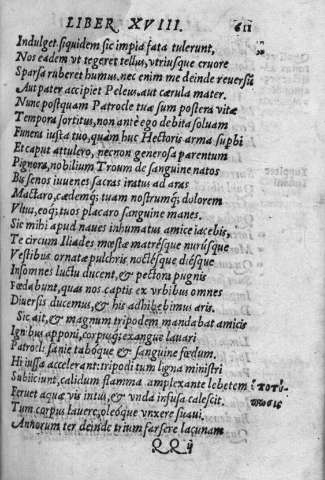 LIBER XVIII. 611
Indulget. siquidem sic impia fata tulerunt,
Nos eadem vt tegeret tellus, vtriusque cruore
Sparsa ruberet humus. nec enim me deinde reuersū
Aut pater accipiet Peleus, aut cærula mater.
Nunc postquam Patrocle tuæ sum postera vitæ
Tempora sortitus, non antè ego debita soluam
Funera iusta tuo, quàm huc Hectoris arma superbi
Et caput attulero, necnon generosa parentum
Pignora, nobilium Troum de sanguine natos
Bis senos iuuenes sacras iratus ad aras
Mactaro, cædemq́; tuam nostrumq́; dolorem
Vltus, eoq́; tuos placaro sanguine manes.
Sic mihi apud naues inhumatus amice iacebis,
Te circum Iliades mœstæ matrésque nurúsque
Vestibus ornatæ pulchris noctésque diésque
Insomnes luctu ducent, & pectora pugnis
Fœdabunt, quas nos captis ex vrbibus omnes
Diuersis ducemus, & his adhibebimus aris.
Sic ait, & magnum tripodem mandabat amicis
Ignibus apponi, corpusq́; exangue lauari
Patrocli sanie tabóque & sanguine fœdum.
Hi iussa accelerant: tripodi tum ligna ministri
Subiiciunt, calidum flamma amplexante lebetem
ὑποτύ-
Feruet aquæ vis intus, & vnda infusa calescit.
πωσις
Tum corpus lauere, oleóque vnxere suaui.
Annorum ter deinde trium sarsere lacunam
ij